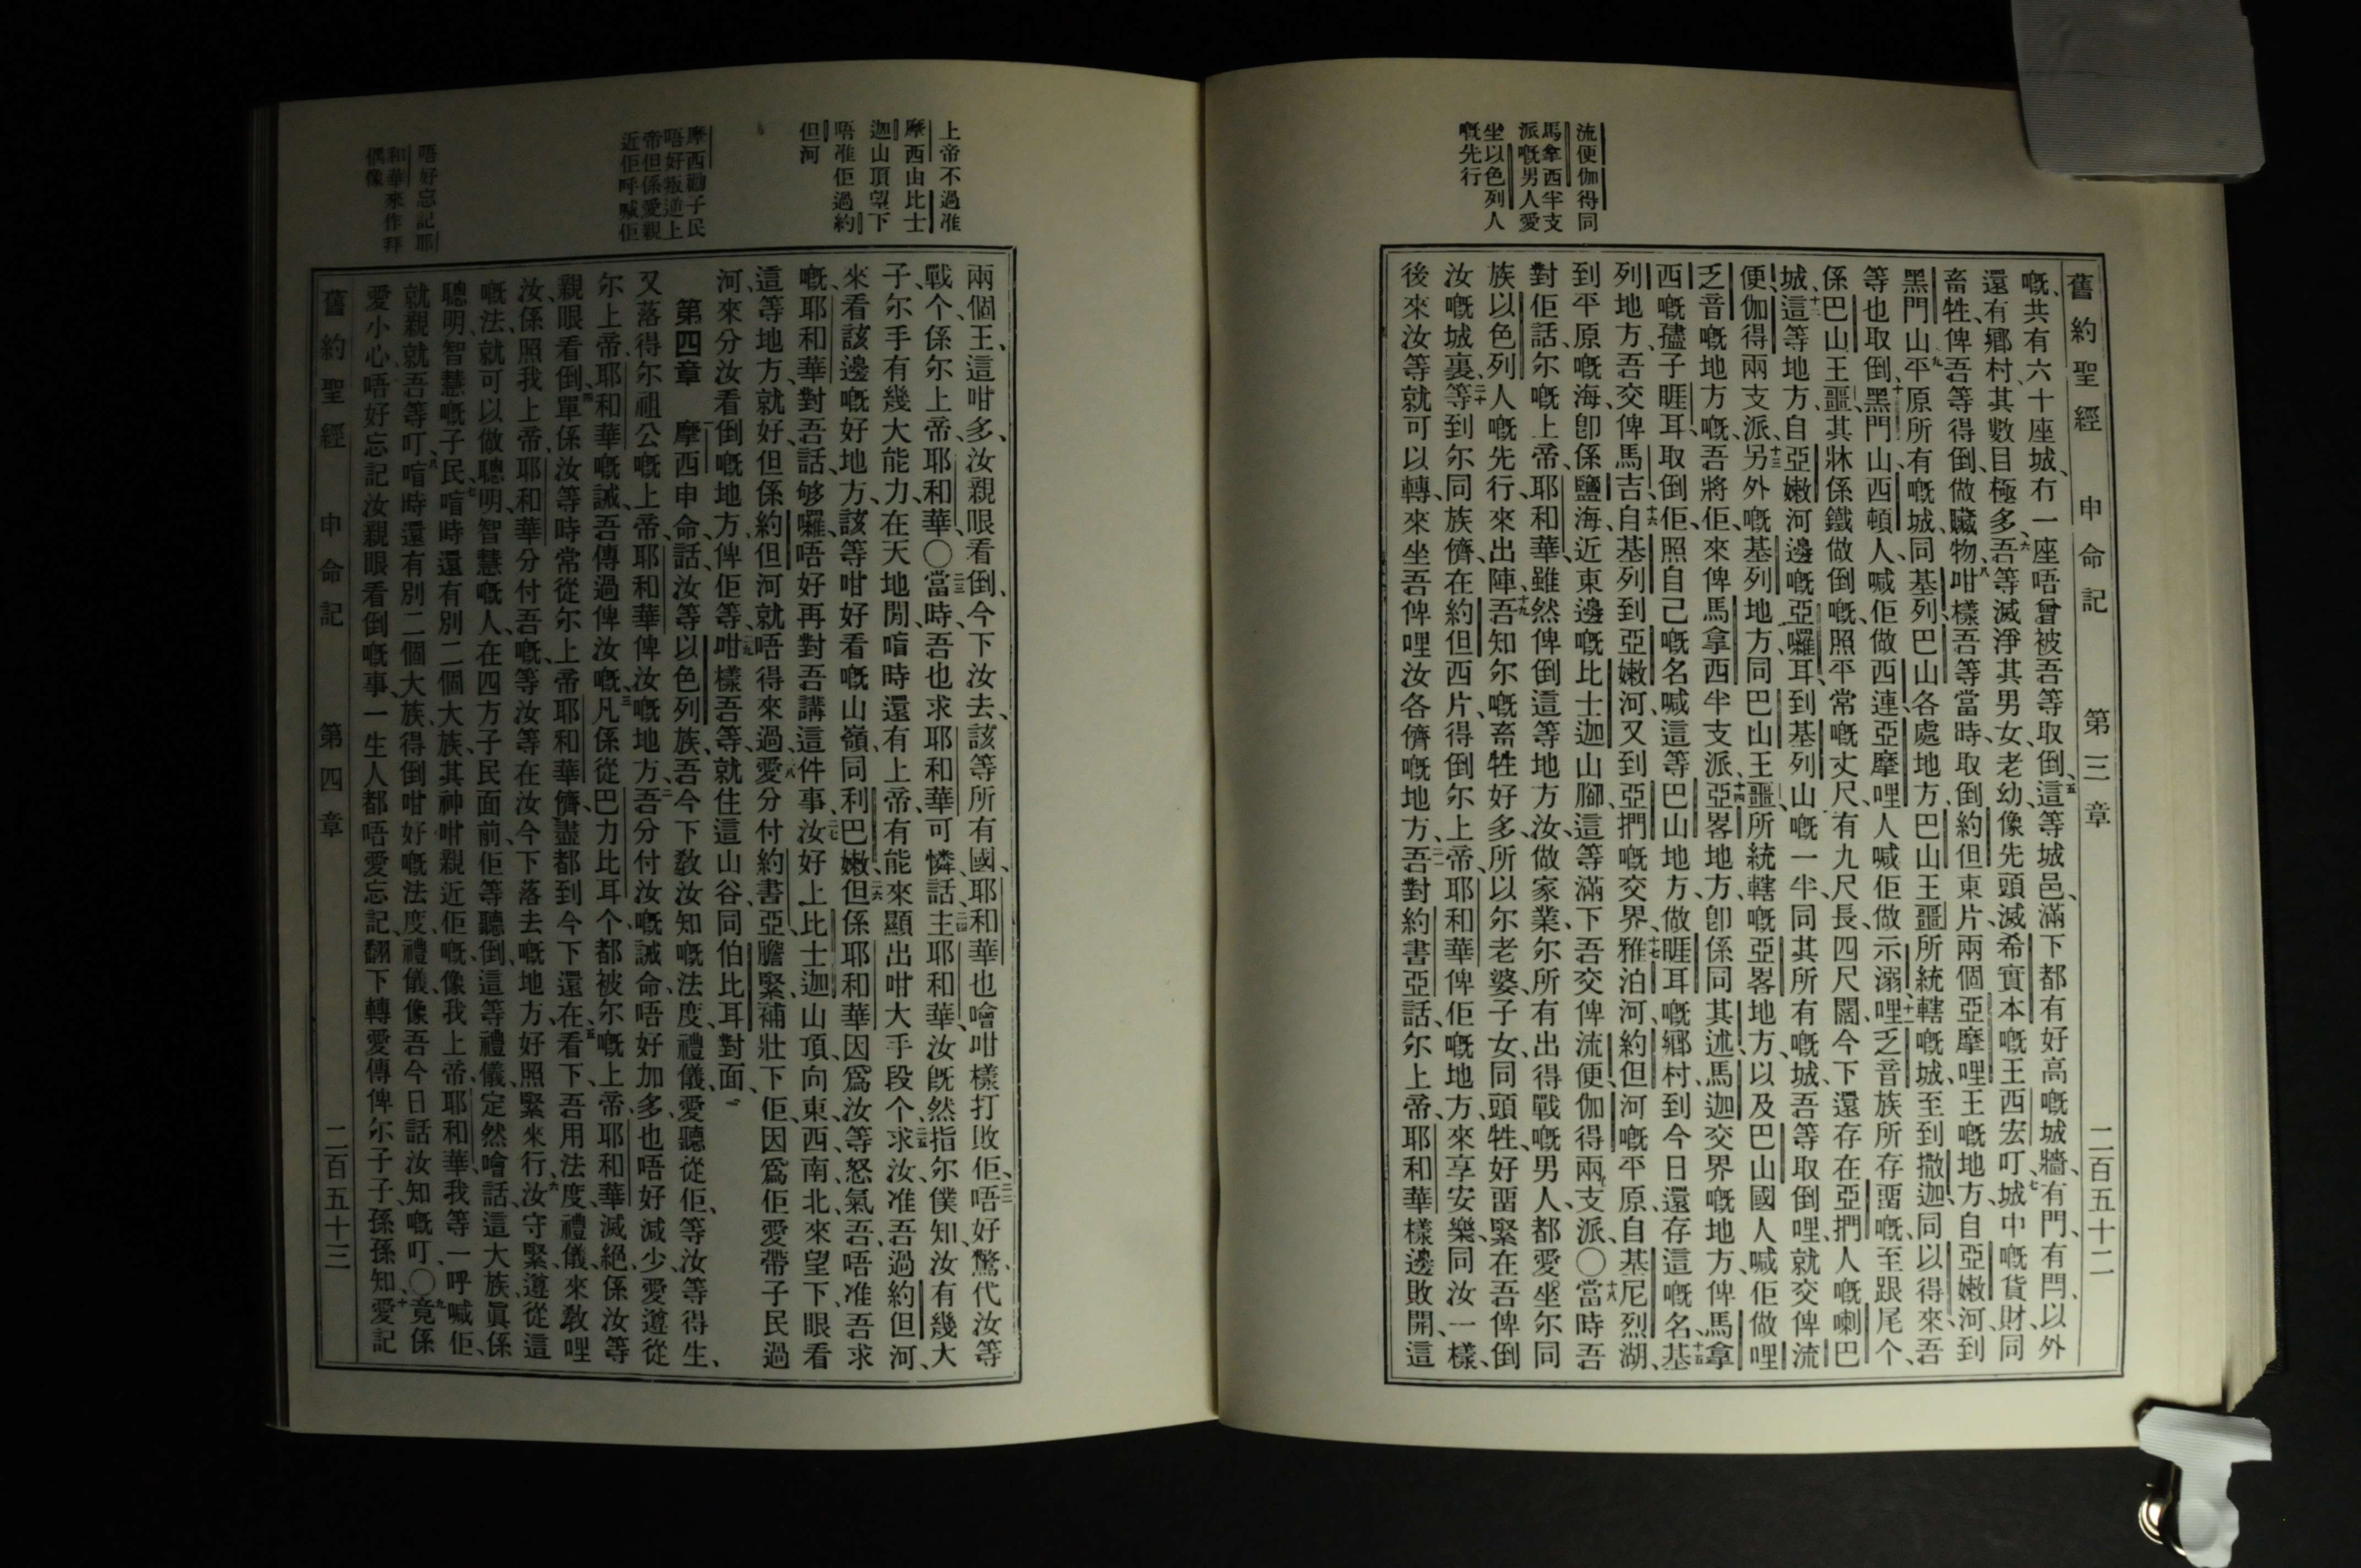 流便伽得同
馬拿西半支
派嘅男人愛
坐以色列人
嘅先行
舊約聖經 申命記 第三章 二百五十二
嘅、共有六十座城、冇一座唔曾被吾等取倒、五這等城邑、滿下都有好高嘅城牆、有門、有閂、以外
還有鄉村、其數目極多、六吾等滅淨其男女、老幼、像先頭滅希實本嘅王西宏叮、七城中嘅貨財、同
畜牲、俾吾等得倒、做贜物、八咁樣吾等當時、取倒約但東片、兩個亞摩哩王嘅地方、自亞嫩河、到
黑門山、九平原所有嘅城、同基列、巴山各處地方、巴山王噩所統轄嘅城、至到撒迦、同以得來、吾
等也取倒、十黑門山、西頓人、喊佢做西連、亞摩哩人喊佢做示溺哩、十一乏音族所存畱嘅、至跟尾个、
係巴山王噩、其牀係鐵做倒嘅、照平常嘅丈尺、有九尺長、四尺闊、今下還存在亞捫人嘅喇巴
城、十二這等地方、自亞嫩河邊嘅亞囉耳、到基列山嘅一半、同其所有嘅城、吾等取倒哩、就交俾流
便、伽得兩支派、十三另外嘅基列地方、同巴山王噩、所統轄嘅亞畧地方、以及巴山國人、喊佢做哩
乏音嘅地方嘅、吾將佢、來俾馬拿西半支派、十四亞畧地方、卽係同其述、馬迦交界嘅地方、俾馬拿
西嘅孻子睚耳、取倒佢、照自己嘅名、喊這等巴山地方、做睚耳嘅鄉村、到今日還存這嘅名、十五基
列地方、吾交俾馬吉、十六自基列到亞嫩河、又到亞捫嘅交界、十七雅泊河、約但河嘅平原、自基尼烈湖、
到平原嘅海、卽係鹽海、近東邊嘅比士迦山腳、這等滿下吾交俾流便、伽得兩支派、〇十八當時吾
對佢話、尔嘅上帝、耶和華、雖然俾倒這等地方、汝做家業、尔所有出得戰嘅男人、都愛坐尔同
族以色列人嘅先行、來出陣、十九吾知尔嘅畜牲好多、所以尔老婆、子女、同頭牲、好畱緊在吾俾倒
汝嘅城裏、二十等到尔同族儕、在約但西片、得倒尔上帝、耶和華俾佢嘅地方、來享安樂、同汝一樣、
後來汝等就可以轉、來坐吾俾哩汝各儕嘅地方、二一吾對約書亞話、尔上帝、耶和華樣邊敗開、這
上帝不過准
摩西由比士
迦山頂望下
唔准佢過約
但河
摩西勸子民
唔好叛逆上
帝但係愛親
近佢呼喊佢
唔好忘記耶
和華來作拜
偶像
兩個王、這咁多、汝親眼看倒、今下汝去、該等所有國、耶和華也噲咁樣打敗佢、二二唔好驚、代汝等
戰个、係尔上帝、耶和華、〇二三當時、吾也求耶和華可憐、話、二四主耶和華、汝既然指尔僕知、汝有幾大
子、尔手有幾大能力、在天地間、喑時還有上帝、有能來顯出咁大手段个、二五求汝、准吾過約但河、
來看該邊嘅好地方、該等咁好看嘅山嶺、同利巴嫩、二六但係耶和華、因爲汝等怒氣吾、唔准吾求
嘅、耶和華對吾話、够囉、唔好再對吾講這件事、二七汝好上比士迦山頂、向東、西、南、北、來望下、眼看
這等地方、就好、但係約但河、就唔得來過、二八愛分付約書亞、膽緊、補壯下佢、因爲佢愛帶子民過
河、來分汝看倒嘅地方、俾佢等、二九咁樣吾等、就住這山谷、同伯比耳對面、
第四章 一摩西申命話、汝等以色列族、吾今下敎汝知嘅法度、禮儀、愛聽從佢、等汝等得生、
又落得尔祖公嘅上帝、耶和華俾汝嘅地方、二吾分付汝嘅誡命、唔好加多、也唔好減少、愛遵從
尔上帝、耶和華嘅誡、吾傳過俾汝嘅、三凡係從巴力比耳个、都被尔嘅上帝、耶和華滅絕、係汝等
親眼看倒、四單係汝等時常從尔上帝耶和華儕、盡都到今下還在、五看下、吾用法度、禮儀、來敎哩
汝、係照我上帝、耶和華分付吾嘅、等汝等在汝今下落去嘅地方、好照緊來行、六汝守緊、遵從這
嘅法、就可以做聰明、智慧嘅人、在四方子民面前、佢等聽倒這等禮儀、定然噲話、這大族、眞係
聰明、智慧嘅子民、七喑時還有別二個大族、其神咁親近佢嘅、像我上帝、耶和華、我等一呼喊佢、
就親就吾等叮、八喑時還有別二個大族、得倒咁好嘅法度、禮儀、像吾今日話汝知嘅叮、〇九竟係
愛小心、唔好忘記汝親眼看倒嘅事、一生人都唔愛忘記、翻下轉愛傳俾尔子子、孫孫知、十愛記
舊約聖經 申命記 第四章 二百五十三